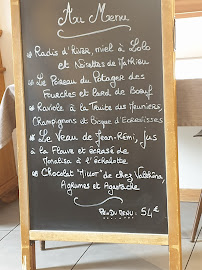 Au Menu
Radis d'hiver, miel à Lolo
et Noisettes de Mathieu
Le Poireau du Potager des
Fourches et lard de Bœuf
Raviole à la Truite des Meuniers,
Champignons et Bisque d'Ecrevisses
Le Veau de Jean-Rémi, jus
à la Flouve et écrasé de
Monalisa à l'échalotte
Chocolat "Millot" de chez Valrhona,
Agrumes et Agastache
54€